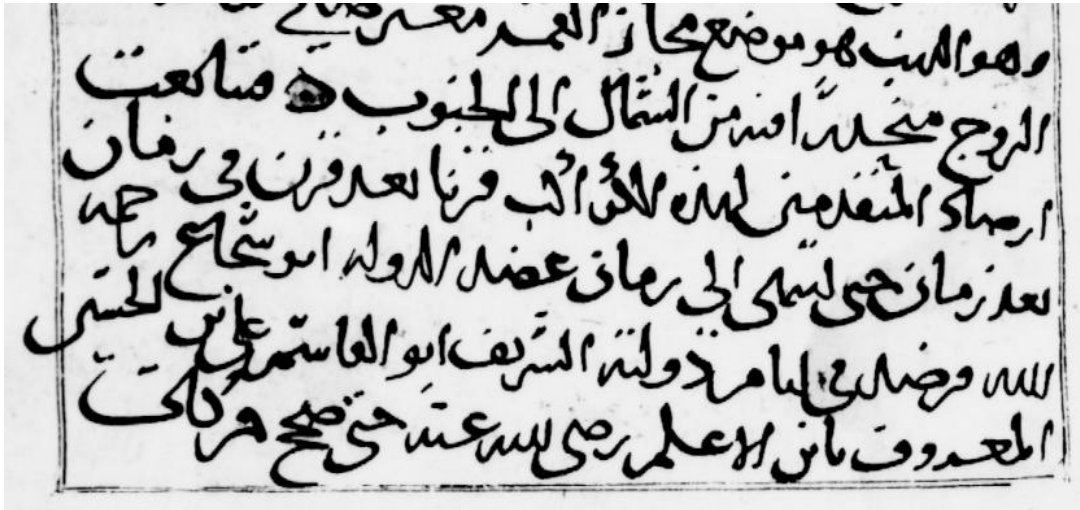 وهو الذنب هو موضع مجاز القمر
البروج منحدرا فيه من الشمال الى الجنوب فتتابعت
ارصاد المتقدمين لهذه الكواكب قرنا بعد قرن في زمان
بعد زمان حتى انتهى الى زمان عضد الدوله ابو شجاع رحمه
الله فرصد في ايام دولته الشريف ابو القاسم علي بن الحسين
المعروف بابن الاعلم رضي الله عنه حتى صحح حركات